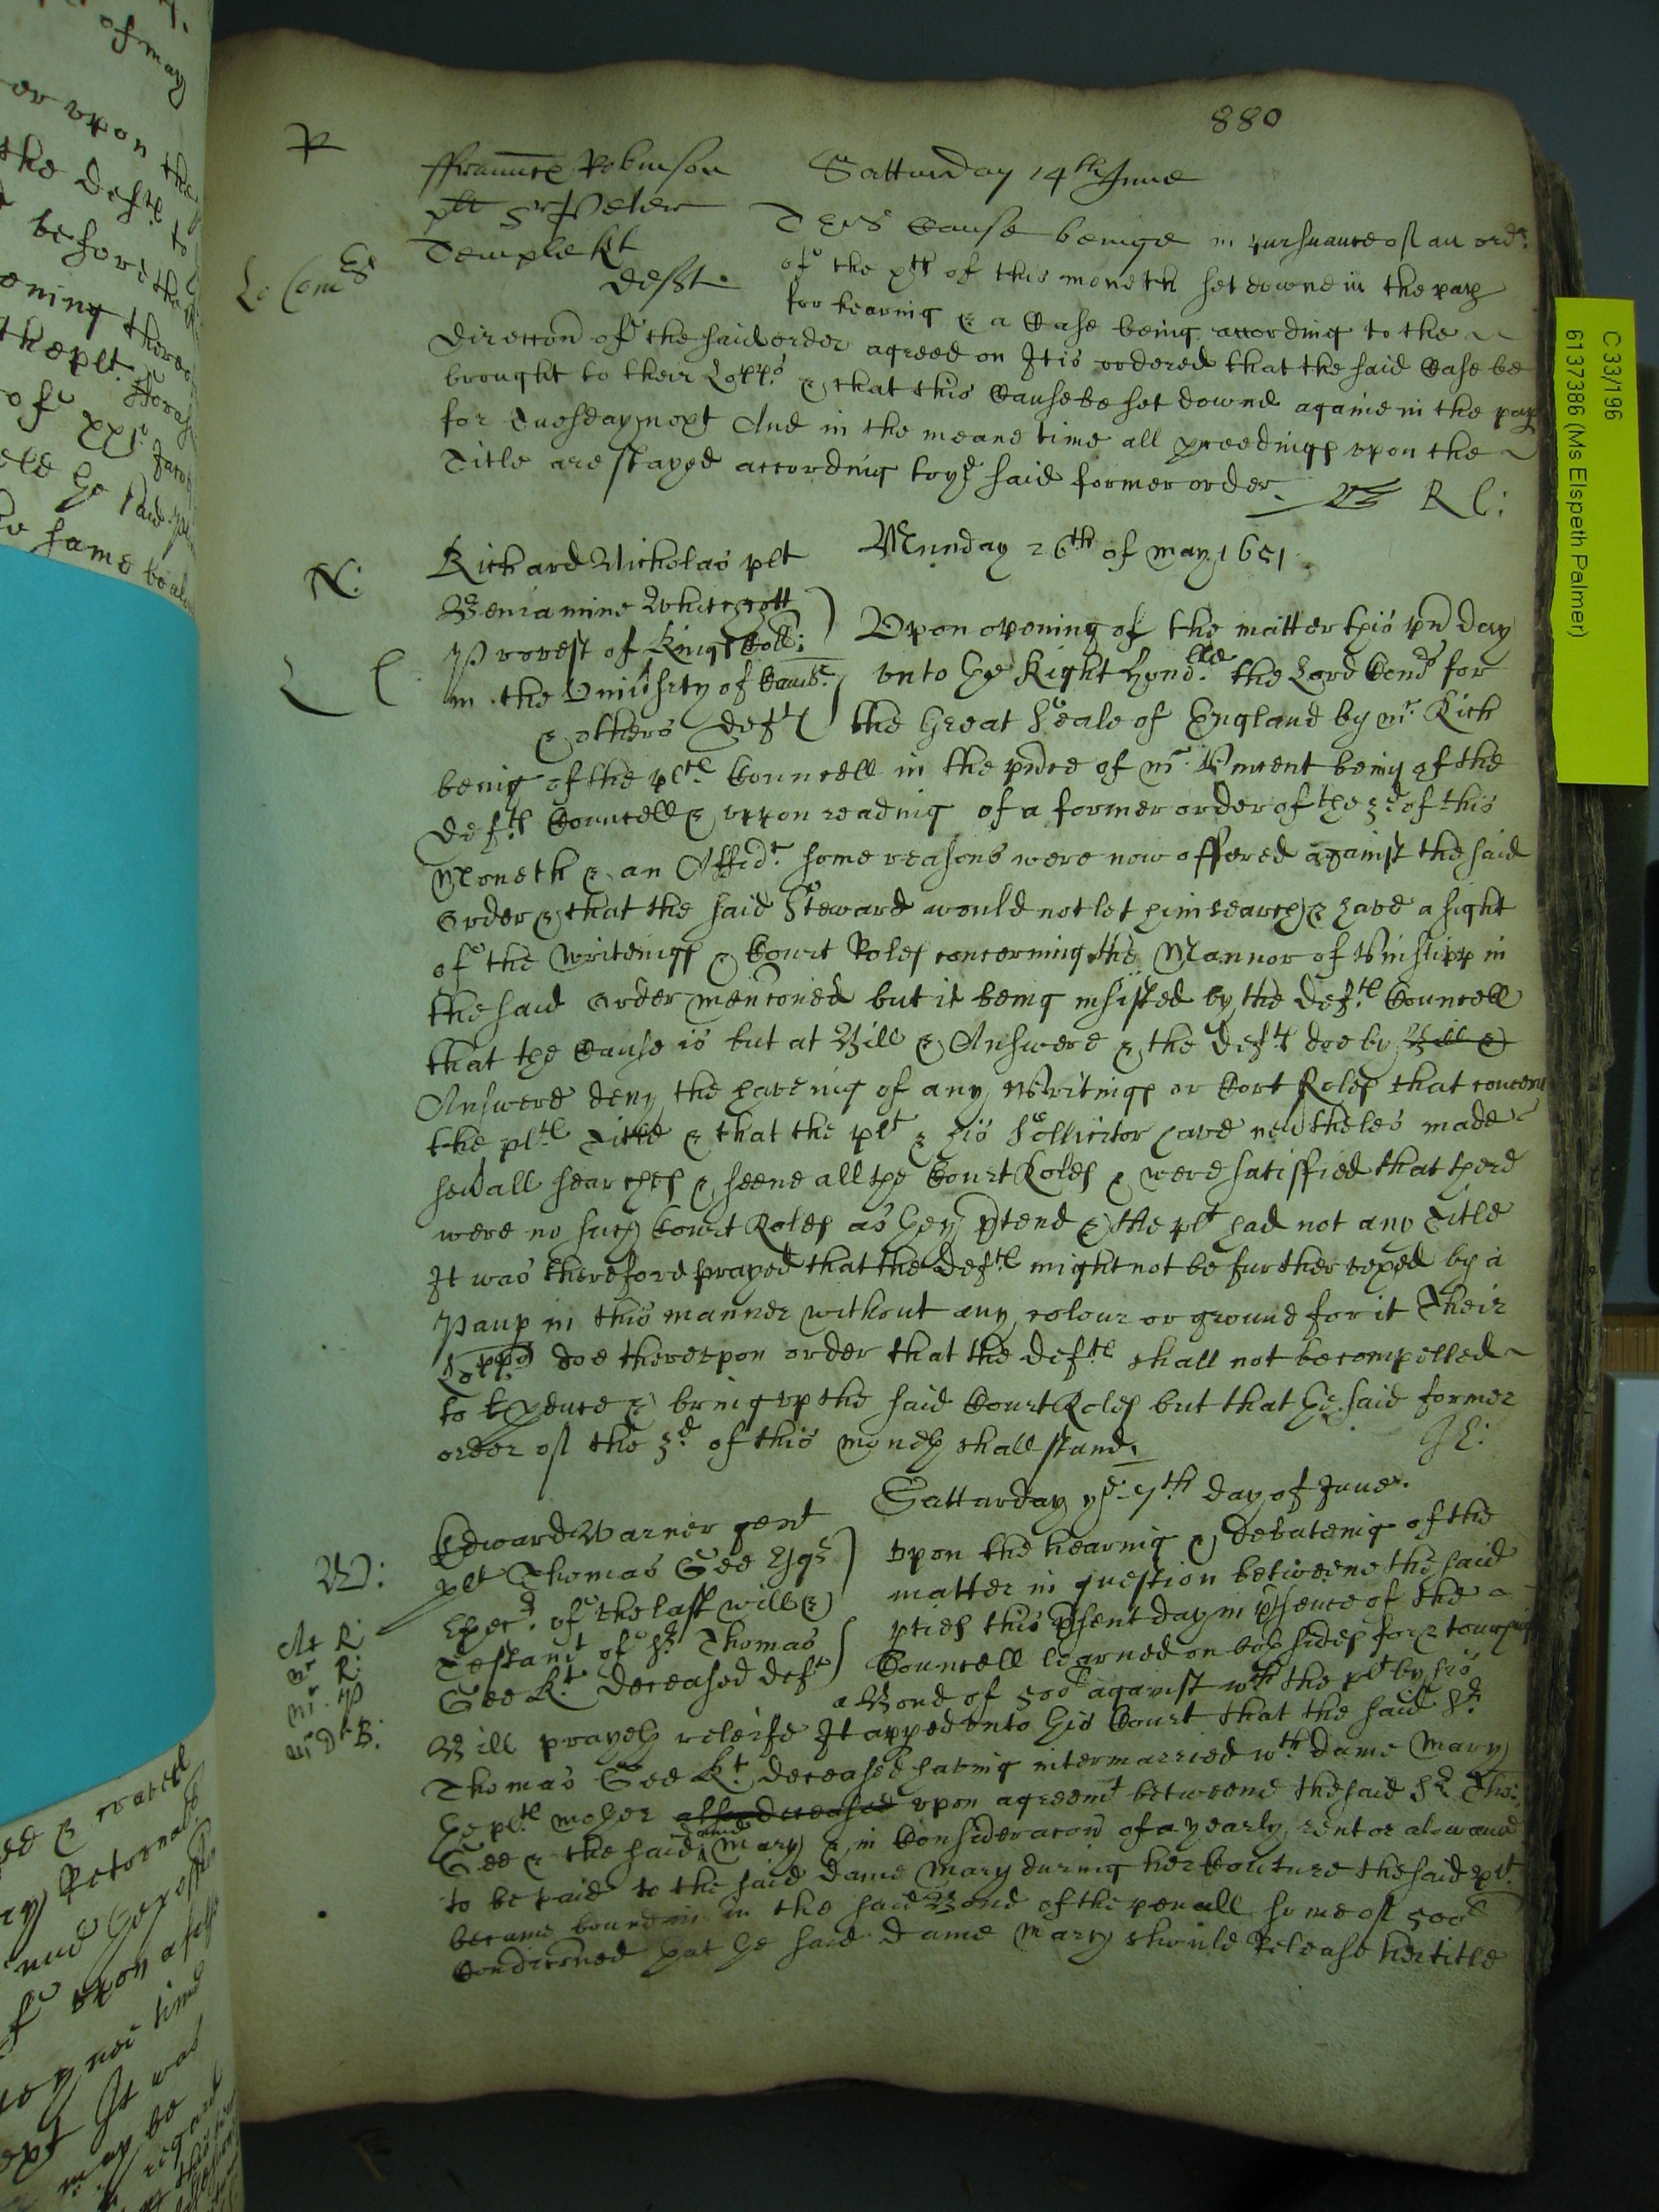 880
R
ffraunces Robinson
plt Sr Peter
Temple kt
deft.
Satturday 14th June
Lo Comrs
This Cause beinge in pursuance of an ordr
of the xth of this moneth set downe in the pap
for hearing & a Case being according to the
direccon of the said order agreed on It is ordered that the said Case be
brought to their Lopps & that this Cause be set downe againe in the pap
for Tuesday next And in the meane time all proceedings upon the
Title are stayed according to ye said former order.
R l:
N:
Richard Nicholas plt
Beniamine Whitchcott
Provost of Kings Coll:
in the University of Camb:
& others defts
Munday 26th of may 1651
L C
Upon opening of the matter this pnt day
unto the Right honoble the Lords Comrs for
the Great Seale of England by mr. Rich
being of the plts Councell in the pnce of mr. Vincent being of the
defts Councell & uppon reading of a former order of the 3d of this
Moneth & an Affidt. some reasons were now offered against the said
order & that the said Steward would not let him search & have a sight
of the writeings & Court Roles concerning the Mannor of Ruislipp in
the said order mencioned but it being insisted by the defts Councell
that the Cause is but at Bill & Answere & the defts doe by Bill &
Answere deny the haveing of any Writings or Cort Roles that concerne
the plts Title & that the plt & his Sollicitor have nevtheles made
sevall searches & seene all the Court Roles & were satisffied that there
were no such Court Roles as they ptend & the plt had not any Title
It was therefore prayed that the defts might not be further vexed by a
Paup in this manner without any colour or ground for it Their
Lopps doe thereupon order that the defts shall not be compelled
to pduce & bring up the said Court Roles but that the said former
order of the 3d of this moneth shall stand.
W:
Edward Warner gent
plt Thomas Gee Esqr
Execr. of the last will &
Testamt of Sr Thomas
Gee Kt. deceased deft
Satturday ye 7th day of June.
At R:
mr R:
mr. P
mr Dr B:
upon the hearing & debateing of the
matter in question betweene the said
pties this psent day in psence of the
Councell learned on both sides for & touching
a Bond of 500l against wch the plt by his
Bill prayeth releife It appeared unto this Court that the said Sr
Thomas Gee Kt. deceased having intermarried wth dame Mary
the plts mother also deceased upon agreemt betweene the said Sr Tho:
Gee & the said dame Mary & in Consideracon of a yearly rent or alowance
to be paid to the said dame Mary during her Couture the said plt.
became bound in the said Bond of the penall some of 500l
Condiconed that the said dame Mary should Release her title
C 33/196
6137386 (Ms Elspeth Palmer)